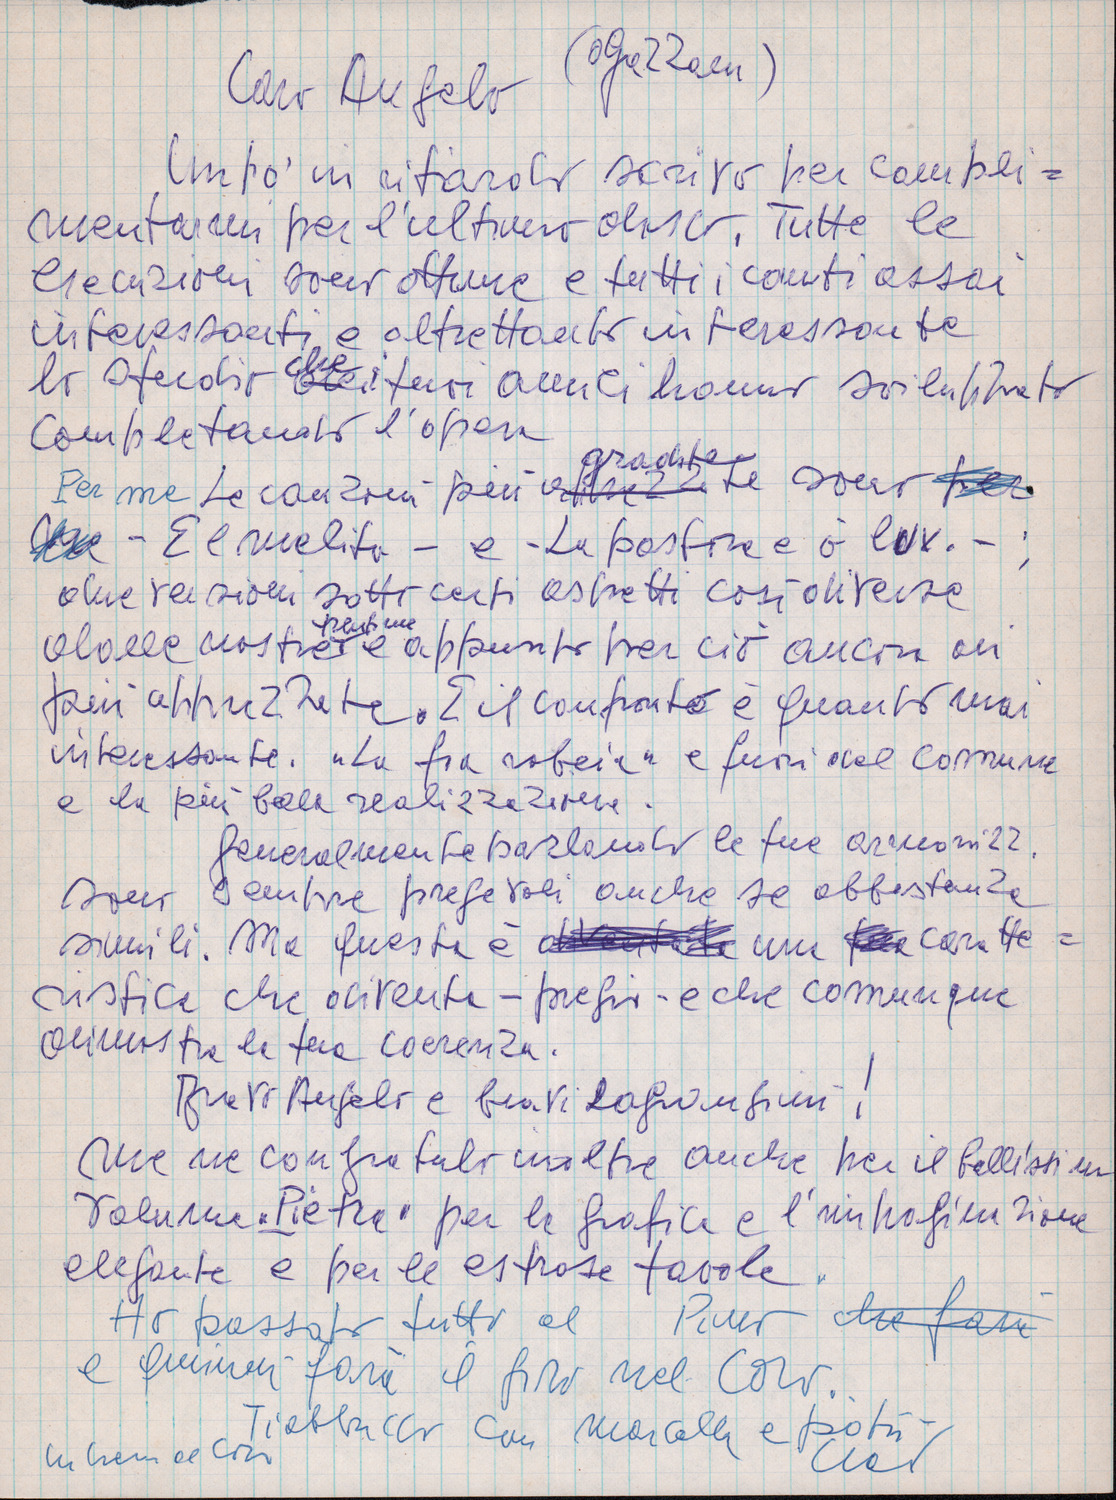 Caro Angelo (Agazzani)
Un po' in ritardo scrivo per compli=
mentarmi per l'ultimo disco. Tutte le
esecuzioni sono ottime e tutti i canti assai
interessanti e altrettanto interessante
lo studio che i tuoi amici hanno sviluppato
completando l'opera
Per me Le canzoni più gradite sono
- El melita - e - La pastora e o lüv. - ;
due versioni sotto certi aspetti così diverse
dalle nostre trentine e appunto per ciò ancor di
più apprezzate. E il confronto è quanto mai
interessante. "La fra " e fuori del comune
e la più bella realizzazione.
Generalmente parlando le tue armonizz.
sono sempre pregevoli anche se abbastanza
simili. Ma questa è una caratte=
ristica che diventa - pregio - e che comunque
dimostra la tua coerenza.
Bravo Angelo e bravi Lagrangini!
Me ne congratulo inoltre anche per il bellissimo
Volume "Pietra" per la grafica e l'impaginazione
elegante e per le estrose tavole.
Ho passato tutto al Piero che farà
e quindi farà il giro nel Coro.
Ti abbraccio con Marcella e
al Coro